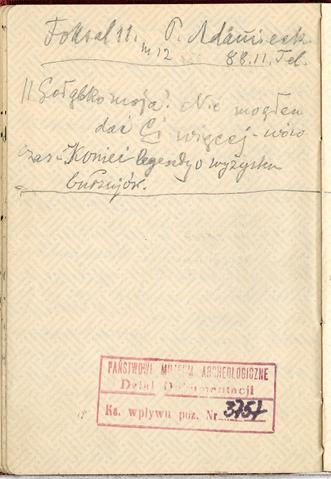 Foksal 11. P. Adamieck
m 12 88.11. Tel.
II Gołąbko moja! Nie mogłem
dać Ci więcej -
czas - Koniec legendy o wyzysku
burżujów.
PAŃSTWOWE MUZEUM ARCHEOLOGICZNE
Dział Dokumentacji
Ks. wpływu poz. Nr 3757